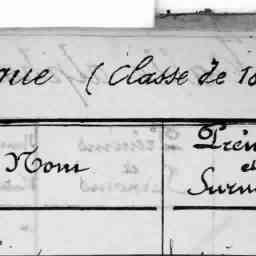 que (Classe de 18
Nom
Prén
et
Surn